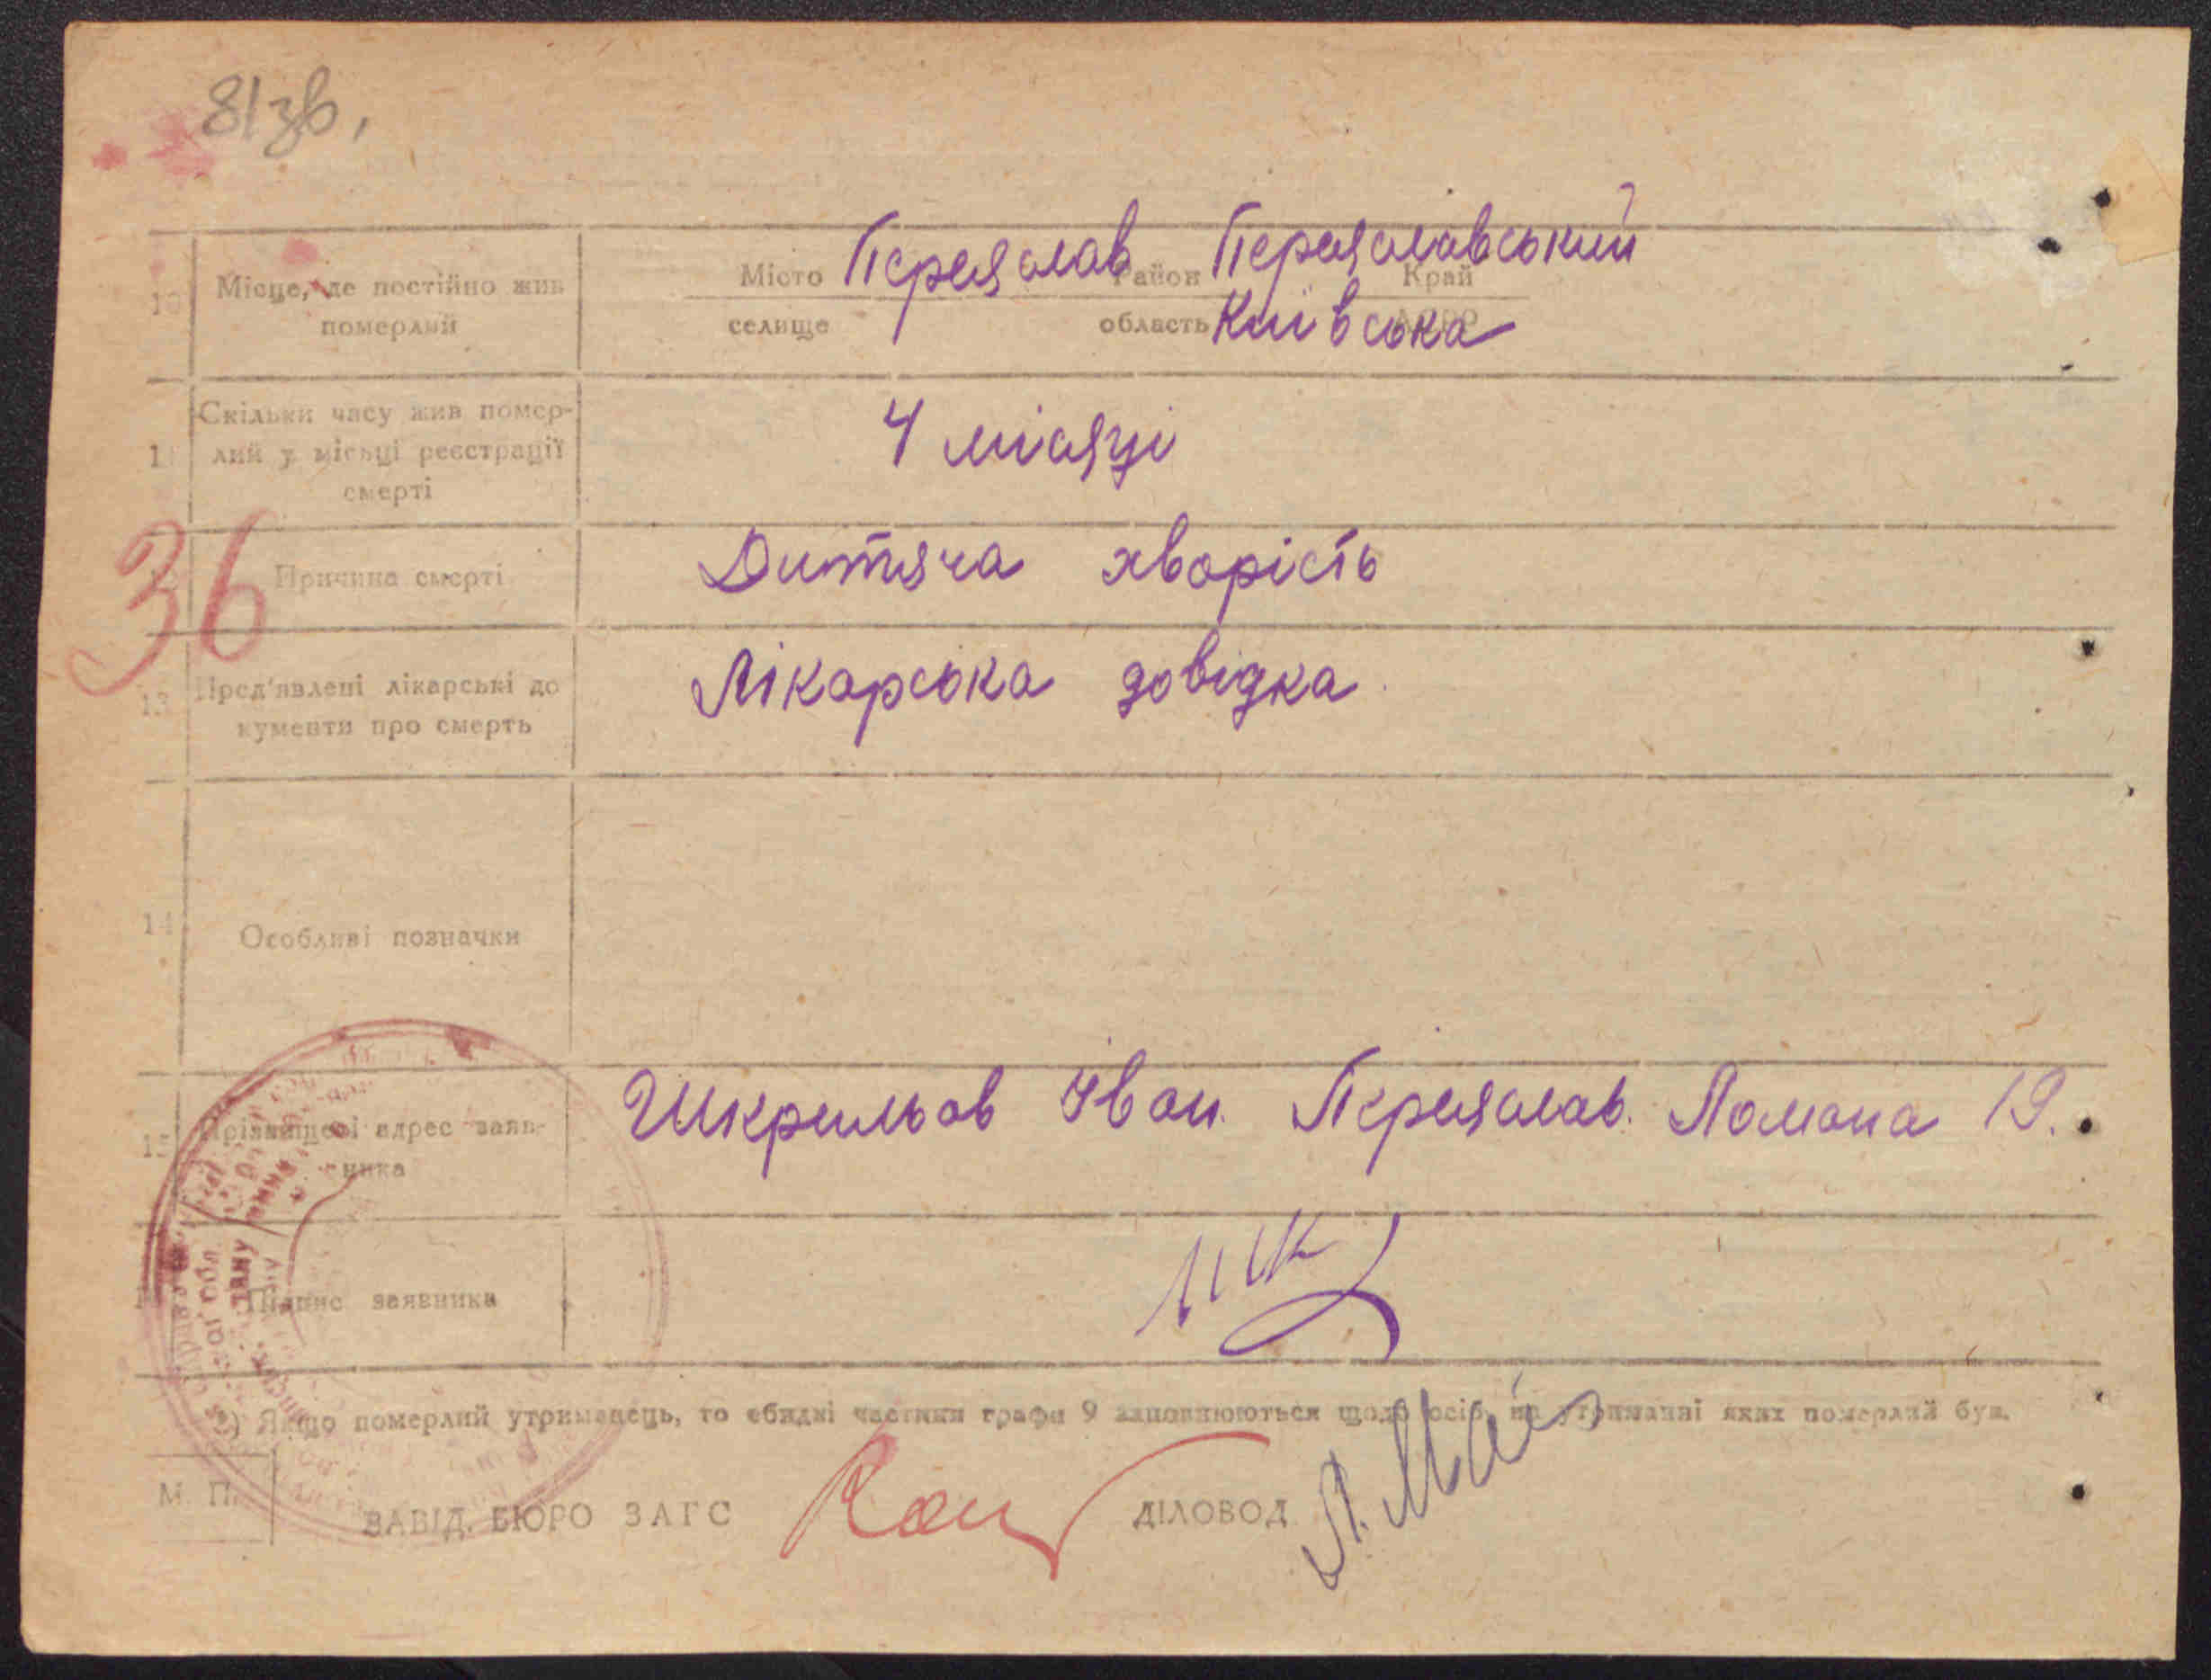 81зв.
10 Місце, де постійно жив померлий
Місто Переяслав Район Переяславський Край
селище область Київська АСРР
11 Скільки часу жив помер-
лий у місьці реєстрації
смерті
4 місяці
36
Причина смерті
Дитяча хворість
13 Пред'явлені лікарські до
кументи про смерть
Лікарська довідка.
14 Особливі позначки
15 Прізвище і адрес заяв-
ника
Шкрильов Іван. Переяслав. Ломана 19.
Підпис заявника
*) Якщо померлий утриманець, то обидві частини графи 9 заповнюються щодо осіб, на утриманні яких померлий був.
М. П.
ЗАВІД. БЮРО ЗАГС ДІЛОВОД